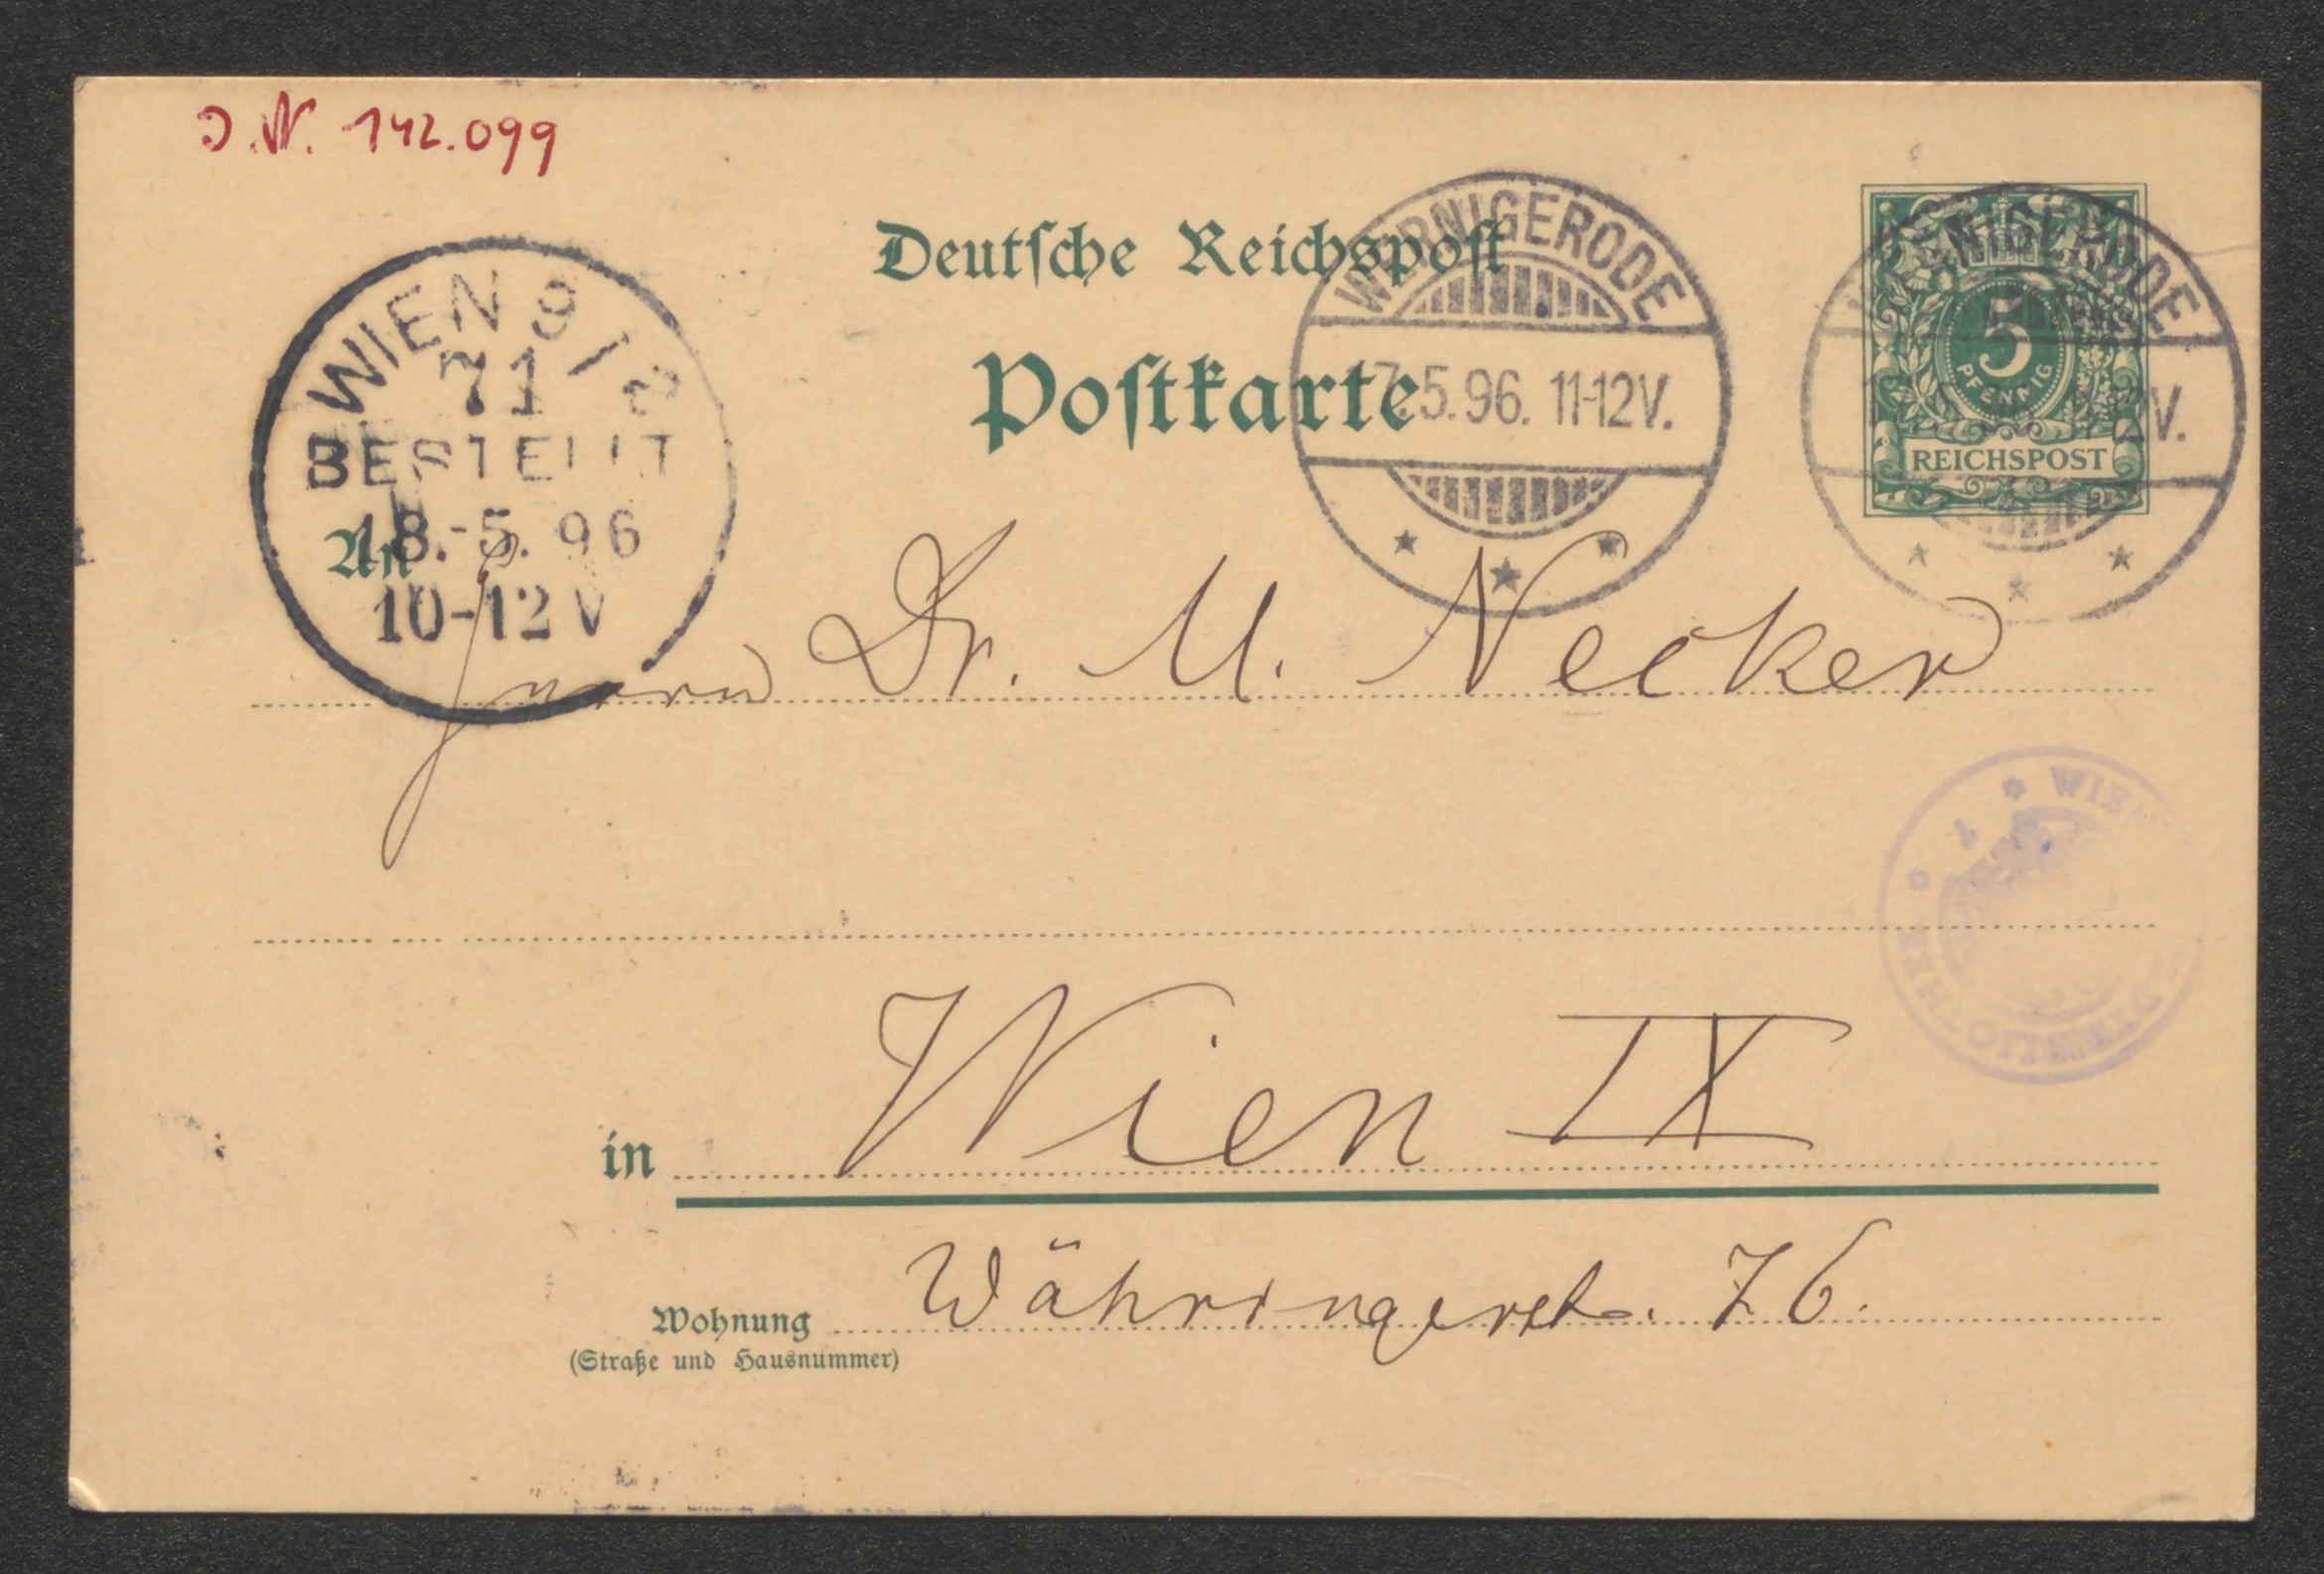 J.N. 142.099
Deutsche Reichspost
Postkarte
WERNIGERODE
17.5.96. 11-12V.
WERNIGERODE
12V.
5
PFENNIG
REICHSPOST
WIEN 9/2
71
BESTELLT
18.-5. 96
10-12 V
An
Herrn Dr. M. Necker
WIE
in Wien IX
Wohnung Währingerst. 76.
(Straße und Hausnummer)